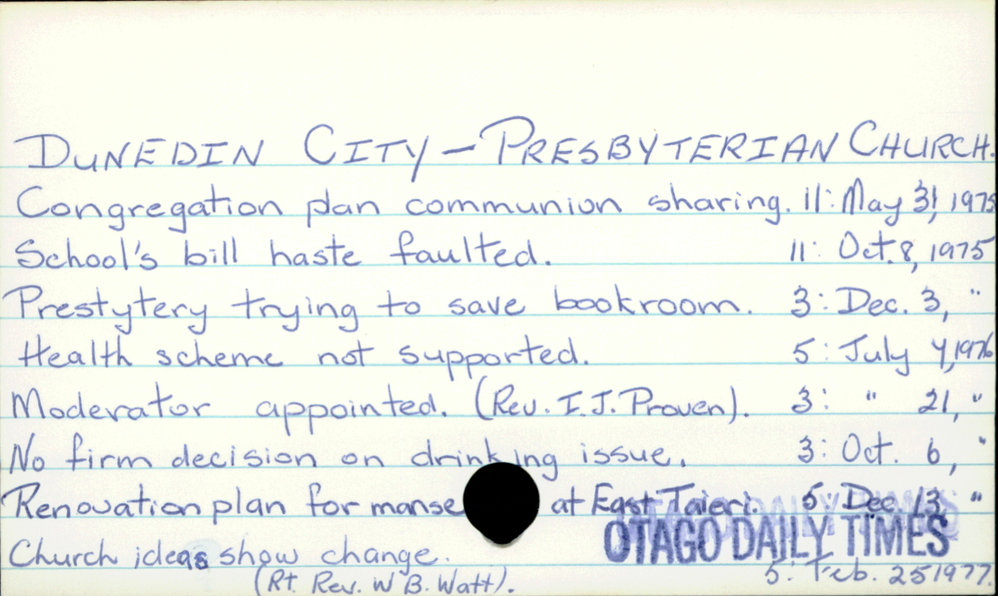 DUNEDIN CITY – PRESBYTERIAN CHURCH.
Congregation plan communion sharing. 11: May 31, 1975
School's bill haste faulted. 11: Oct. 8, 1975
Prestytery trying to save bookroom. 3: Dec. 3, "
Health scheme not supported. 5: July 4, 1976
Moderator appointed. (Rev. I. J. Proven). 3: " 21, "
No firm decision on drinking issue. 3: Oct. 6, "
Renovation plan for manse at East Taieri. 5: Dec. 13 "
OTAGO DAILY TIMES
Church ideas show change.
(Rt. Rev. W B. Watt). 5: Feb. 25 1977.